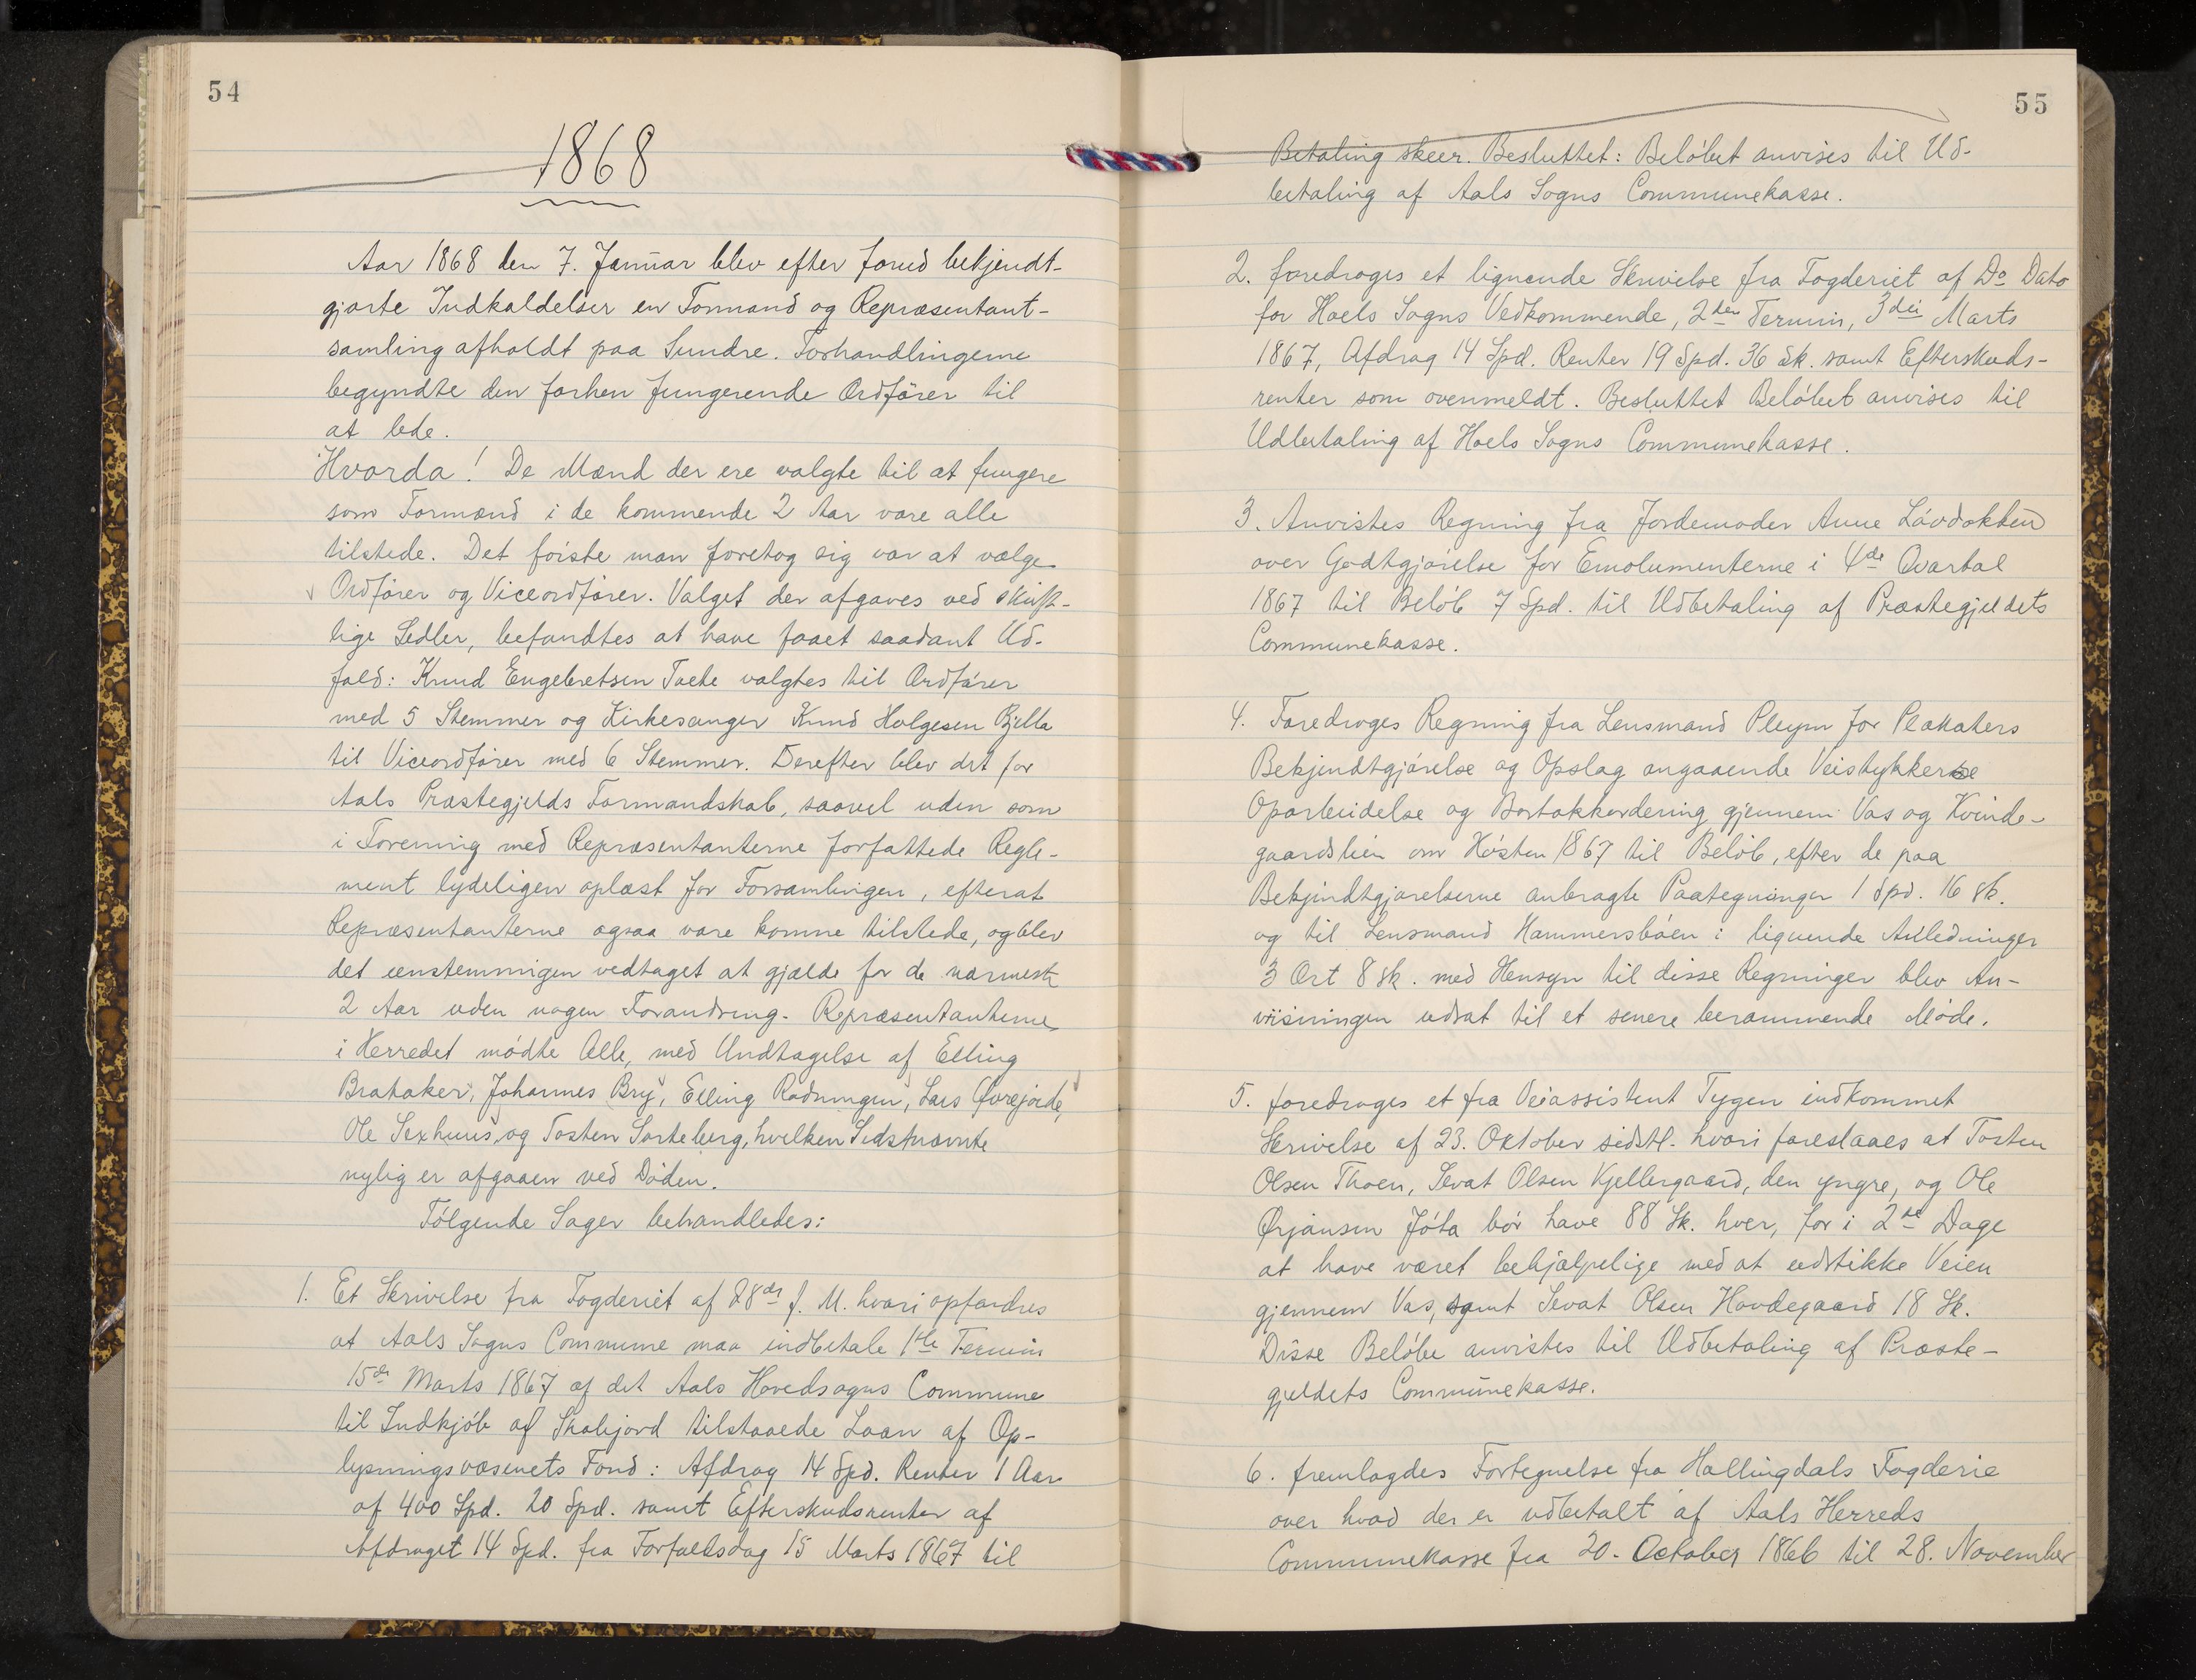 54
1868
Aar 1868 den 7. Januar blev efter forud bekjendt-
gjorte Indkaldelser en Formand og Repræsentant-
samling afholdt paa Sundre. Forhandlingerne
begyndte den forhen fungerende Ordförer til
at lede.
Hvorda! De Mænd der ere valgte til at fungere
som Formænd i de kommende 2 Aar vare alle
tilstede. Det förste man foretog sig var at vælge
Ordförer og Viceordförer. Valget der afgaves ved skrift-
lige Sedler, befandtes at have faaet saadant Ud-
fald: Knud Engebretsen Toete valgtes til Ordförer
med 5 Stemmer og Kirkesanger Knud Holgesen Bjella
til Viceordförer med 6 Stemmer. Derefter blev det for
Aals Præstegjelds Formandskab, saavel uden som
i Forening med Repræsentanterne forfattede Regle-
ment lydeligen oplæst for Forsamlingen, efterat
Repræsentanterne ogsaa vare komne tilstede, og blev
det eenstemmigen vedtaget at gjælde for de nærmeste
2 Aar uden nogen Forandring. Repræsentanterne
i Herredet mödte Alle, med Undtagelse af Elling
Brataker, Johannes Bry, Elling Rødningen, Lars Øvrejorde,
Ole Sexhuus, og Tosten Sorteberg, hvilken Sidstnævnte
nylig er afgaaen ved Döden.
Fölgende Sager behandledes:
1. Et Skrivelse fra Fogderiet af 28de f. M. hvori opfordres
at Aals Sogns Commune maa indbetale 1ste Termin
15de Marts 1867 af det Aals Hovedsogns Commune
til Indkjöb af Skolejord tilstaaede Laan af Op-
lysningsvæsenets Fond: Afdrag 14 Spd. Renter 1 Aar
af 400 Spd. 20 Spd. samt Efterskudsrenter af
Afdraget 14 Spd. fra Forfaldsdag 15 Marts 1867 til
55
Betaling skeer. Besluttet: Belöbet anvises til Ud-
betaling af Aals Sogns Communekasse.
2. foredroges et lignende Skrivelse fra Fogderiet af Do Dato
for Hoels Sogns Vedkommende, 2den Termin, 3die Marts
1867, Afdrag 14 Spd. Renter 19 Spd. 36 Sk. samt Efterskuds-
renter som ovenmeldt. Besluttet Belöbet anvises til
Udbetaling af Hoels Sogns Communekasse.
3. Anvistes Regning fra Jordemoder Anne Lövdokken
over Godtgjörelse for Emolumenterne i 4de Qvartal
1867 til Belöb 7 Spd. til Udbetaling af Præstegjeldets
Communekasse.
4. Foredroges Regning fra Lensmand Pleym for Plakaters
Bekjendtgjörelse og Opslag angaaende Veistykkerne
Oparbeidelse og Bortakkordering gjennem Vas og Kvinde-
gaardslien om Hösten 1867 til Belöb, efter de paa
Bekjendtgjørelserne anbragte Paategninger 1 Spd. 16 sk.
og til Lensmand Hammersböen i lignende Anledninger
3 Ort 8 sk. med Hensyn til disse Regninger blev An-
viisningen udsat til et senere berammende Möde.
5. foredroges et fra Veiassistent Tygen indkommet
Skrivelse af 23. Oktober sidstl. hvori foreslaaes at Tosten
Olsen Thoen, Sevat Olsen Kjellergaard, den yngre, og Ole
Ørjansen Jöta bör have 88 Sk. hver, for i 2de Dage
at have været behjælpelige med at udstikke Veien
gjennem Vas, samt Sevat Olsen Hovdegaard 18 Sk.
Disse Belöbe anvistes til Udbetaling af Præste-
gjeldets Communekasse.
6. fremlagdes Fortegnelse fra Hallingdals Fogderie
over hvad der er udbetalt af Aals Herreds
Communekasse fra 20. October 1866 til 28. November